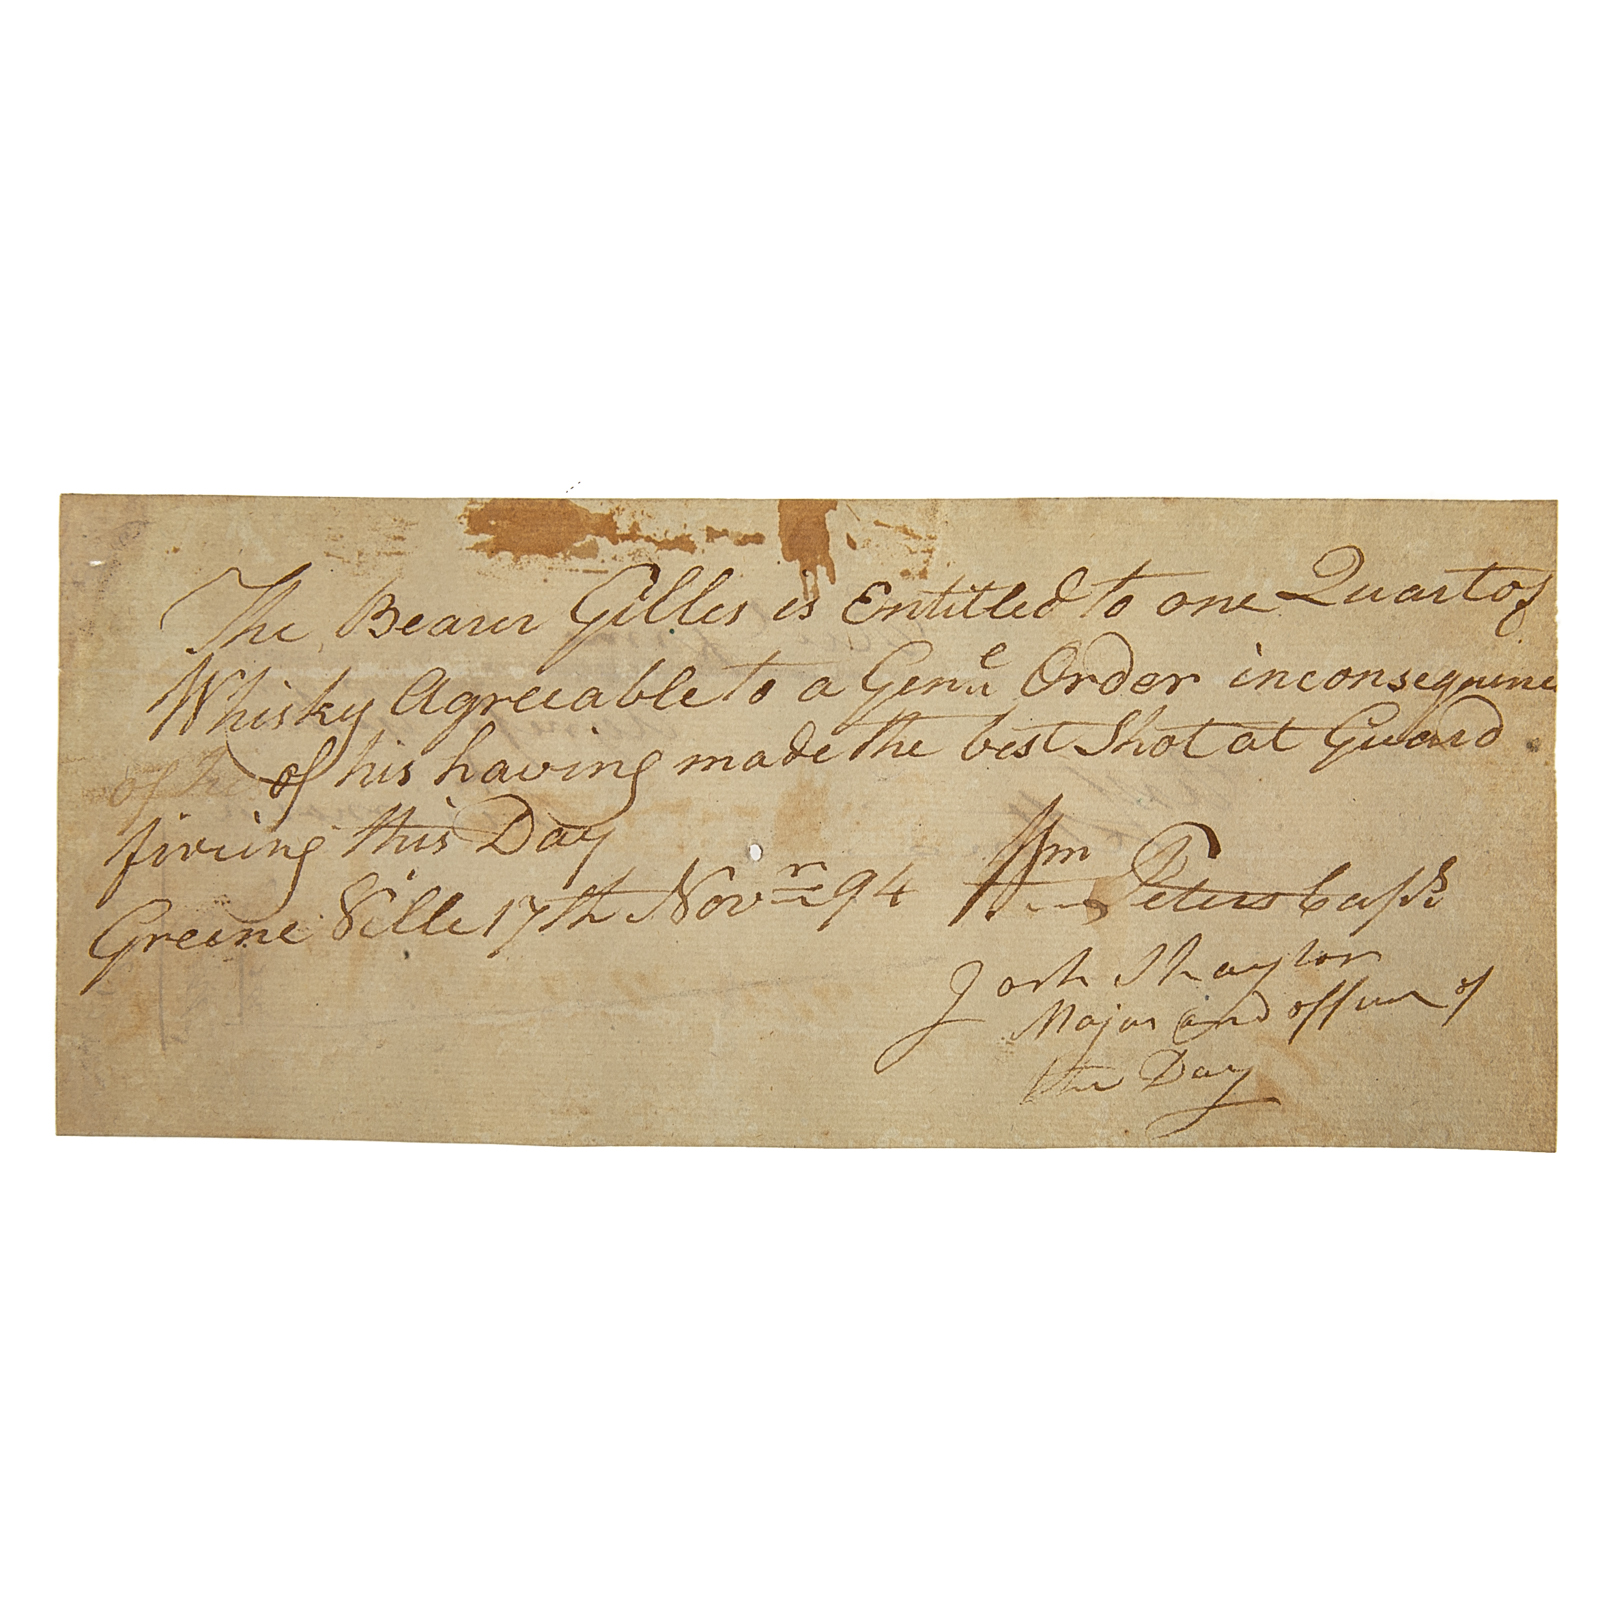 The Bearer Gilles is Entitled to one Quart of
Whisky Agreeable to a Gen.e Order inconsequence
of his having made the best Shot at Guard
fireing this Day
Greene Ville 17th Novr 94 Wm Peters Capt
Josh Shaylor
Major and officer of
the Day